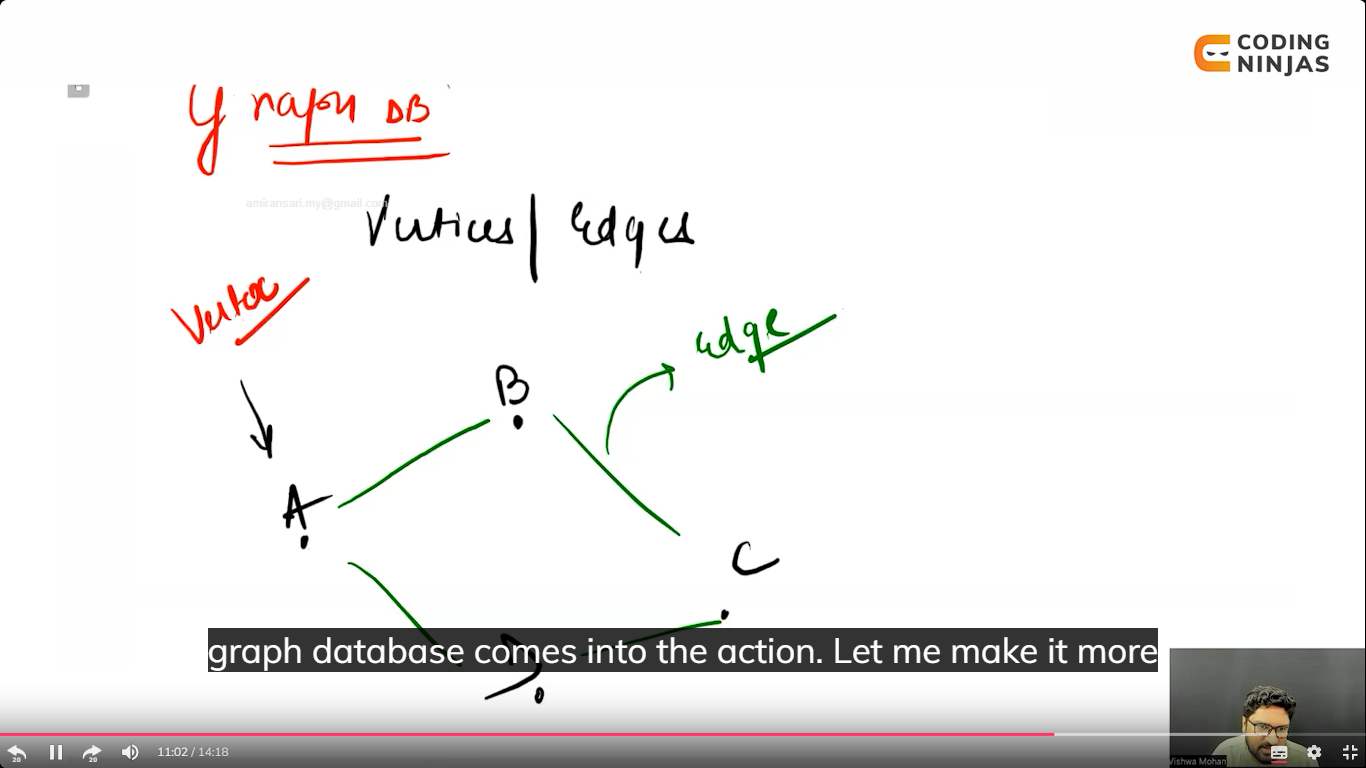 CODING
NINJAS
Graph DB
amiransari.my@gmail.com
Vertices | Edges
Vertex
edge
B
A
C
D
graph database comes into the action. Let me make it more
20
20
11:02 / 14:18
Vishwa Mohan